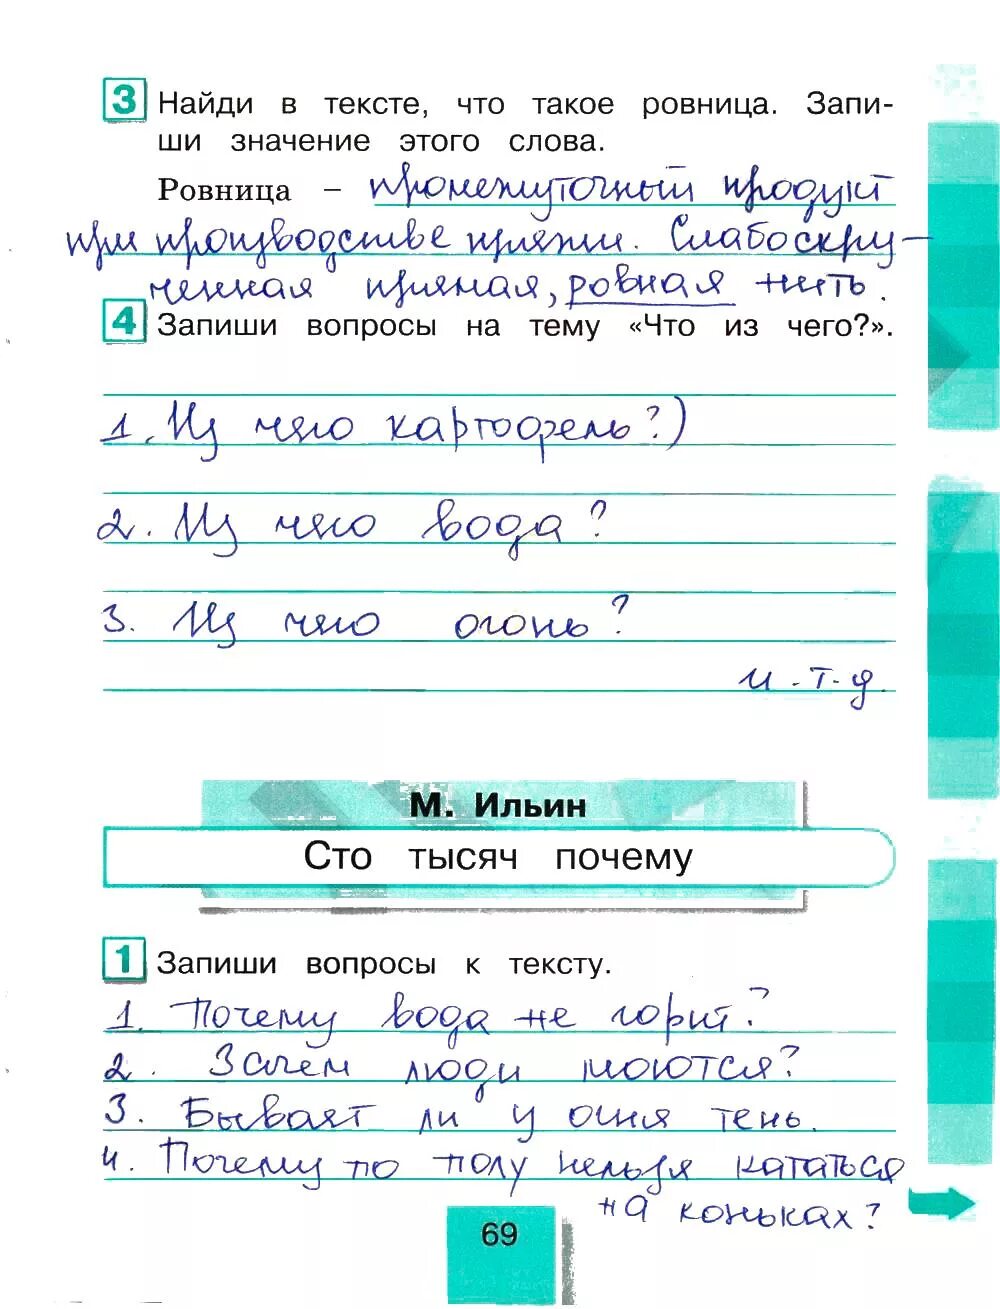 3 Найди в тексте, что такое ровница. Запи-
ши значение этого слова.
Ровница – промежуточный продукт
при производстве пряжи. Слабоскру-
ченная прямая, ровная нить.
4 Запиши вопросы на тему «Что из чего?».
1. Из чего картофель?)
2. Из чего вода?
3. Из чего огонь?
и.т.д.
М. Ильин
Сто тысяч почему
1 Запиши вопросы к тексту.
1. Почему вода не горит?
2. Зачем люди моются?
3. Бывает ли у огня тень.
4. Почему по полу нельзя кататься
на коньках?
69